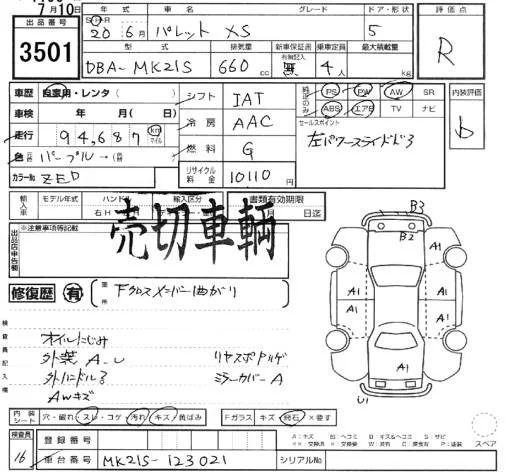 7月10日
出品番号
3501
年式 車名 グレード ドア・形状 評価点
20 6月 パレット XS 5 R
型式 排気量 新車保証書 乗車定員 最大積載量
有無記入
DBA-MK21S 660cc 無 4人 kg
車歴 自家用・レンタ( )
車検 年 月( 日)
走行 94,687 km マイル
色 パープル→
カラーNo. ZED
シフト IAT
冷房 AAC
燃料 G
リサイクル料金 10110円
純正のみ PS PW AW SR
ABS エアB TV ナビ
内装評価
b
セールスポイント
左パワースライドドア
輸入車 モデル年式 ハンドル 輸入区分 書類有効期限
右H 月 日迄
出品店申告欄
※注意事項等記載
売切車輌
修復歴 有 箇所 Fクロスメンバー曲がり
検査員記入欄
オイルにじみ
外装A-U
外ハンドル
AWキズ
リヤスポイラー
ミラーカバーA
B3
B2
A1
A1
A1
A1
A1
A1
U1
内装シート 穴・破れ・スレ・コゲ・汚れ・キズ・黄ばみ Fガラス キズ・飛石・×要す
スペア
A:キズ B:ヘコミ B:キズ&ヘコミ S:サビ
××:交換済 ×:交換要 W:波有 C:腐食有 P:塗装
検査員
16
登録番号
車台番号 MK21S-123021 シリアルNo.